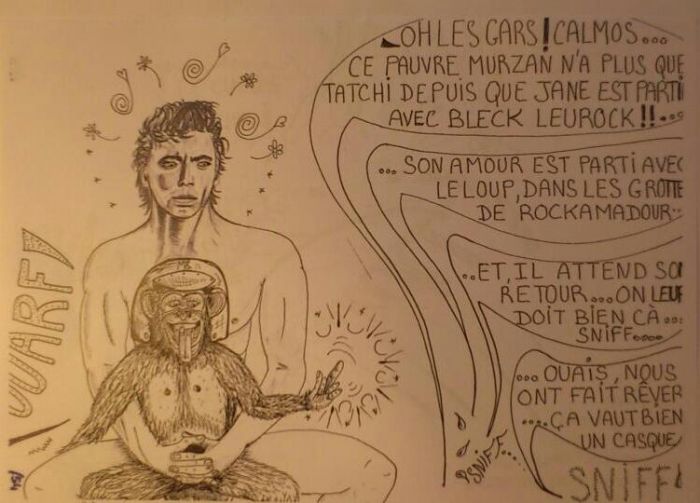 OH LES GARS! CALMOS...
CE PAUVRE MURZAN N'A PLUS QUE
TATCHI DEPUIS QUE JANE EST PARTI
AVEC BLECK LEUROCK!!...
... SON AMOUR EST PARTI AVEC
LE LOUP, DANS LES GROTTE
DE ROCKAMADOUR..
..ET, IL ATTEND SON
RETOUR... ON LEUR
DOIT BIEN CÀ...
SNIFF....
... OUAIS, NOUS
ONT FAIT RÊVER
....ÇA VAUT BIEN
UN CASQUE
SNIFF!
SNIFF....
OUARF!